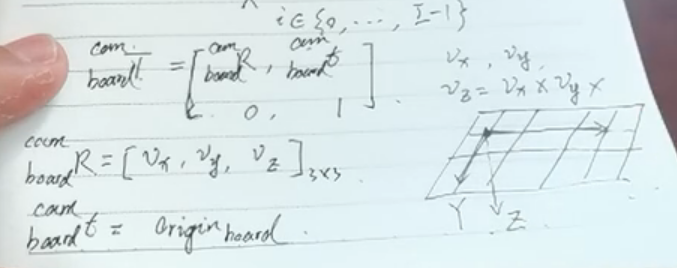 i∈{0, ⋯, I-1}
cam board T = [ cam board R, cam board t
0, 1 ].
v_x, v_y,
v_z = v_x × v_y ×
cam board R = [ v_x, v_y, v_z ]_3×3
cam board t = origin board.
Y Z